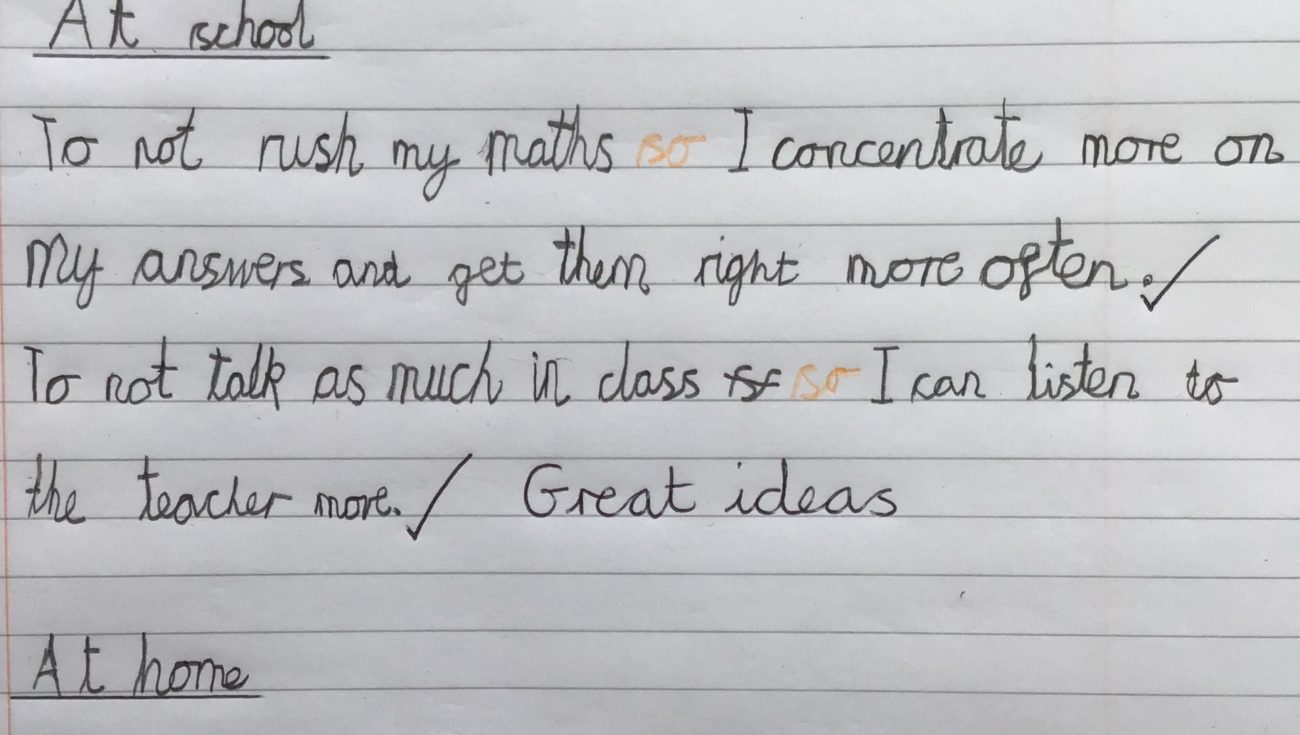 At school
To not rush my maths so I concentrate more on
my answers and get them right more often. ✓
To not talk as much in class so I can listen to
the teacher more. ✓ Great ideas
At home